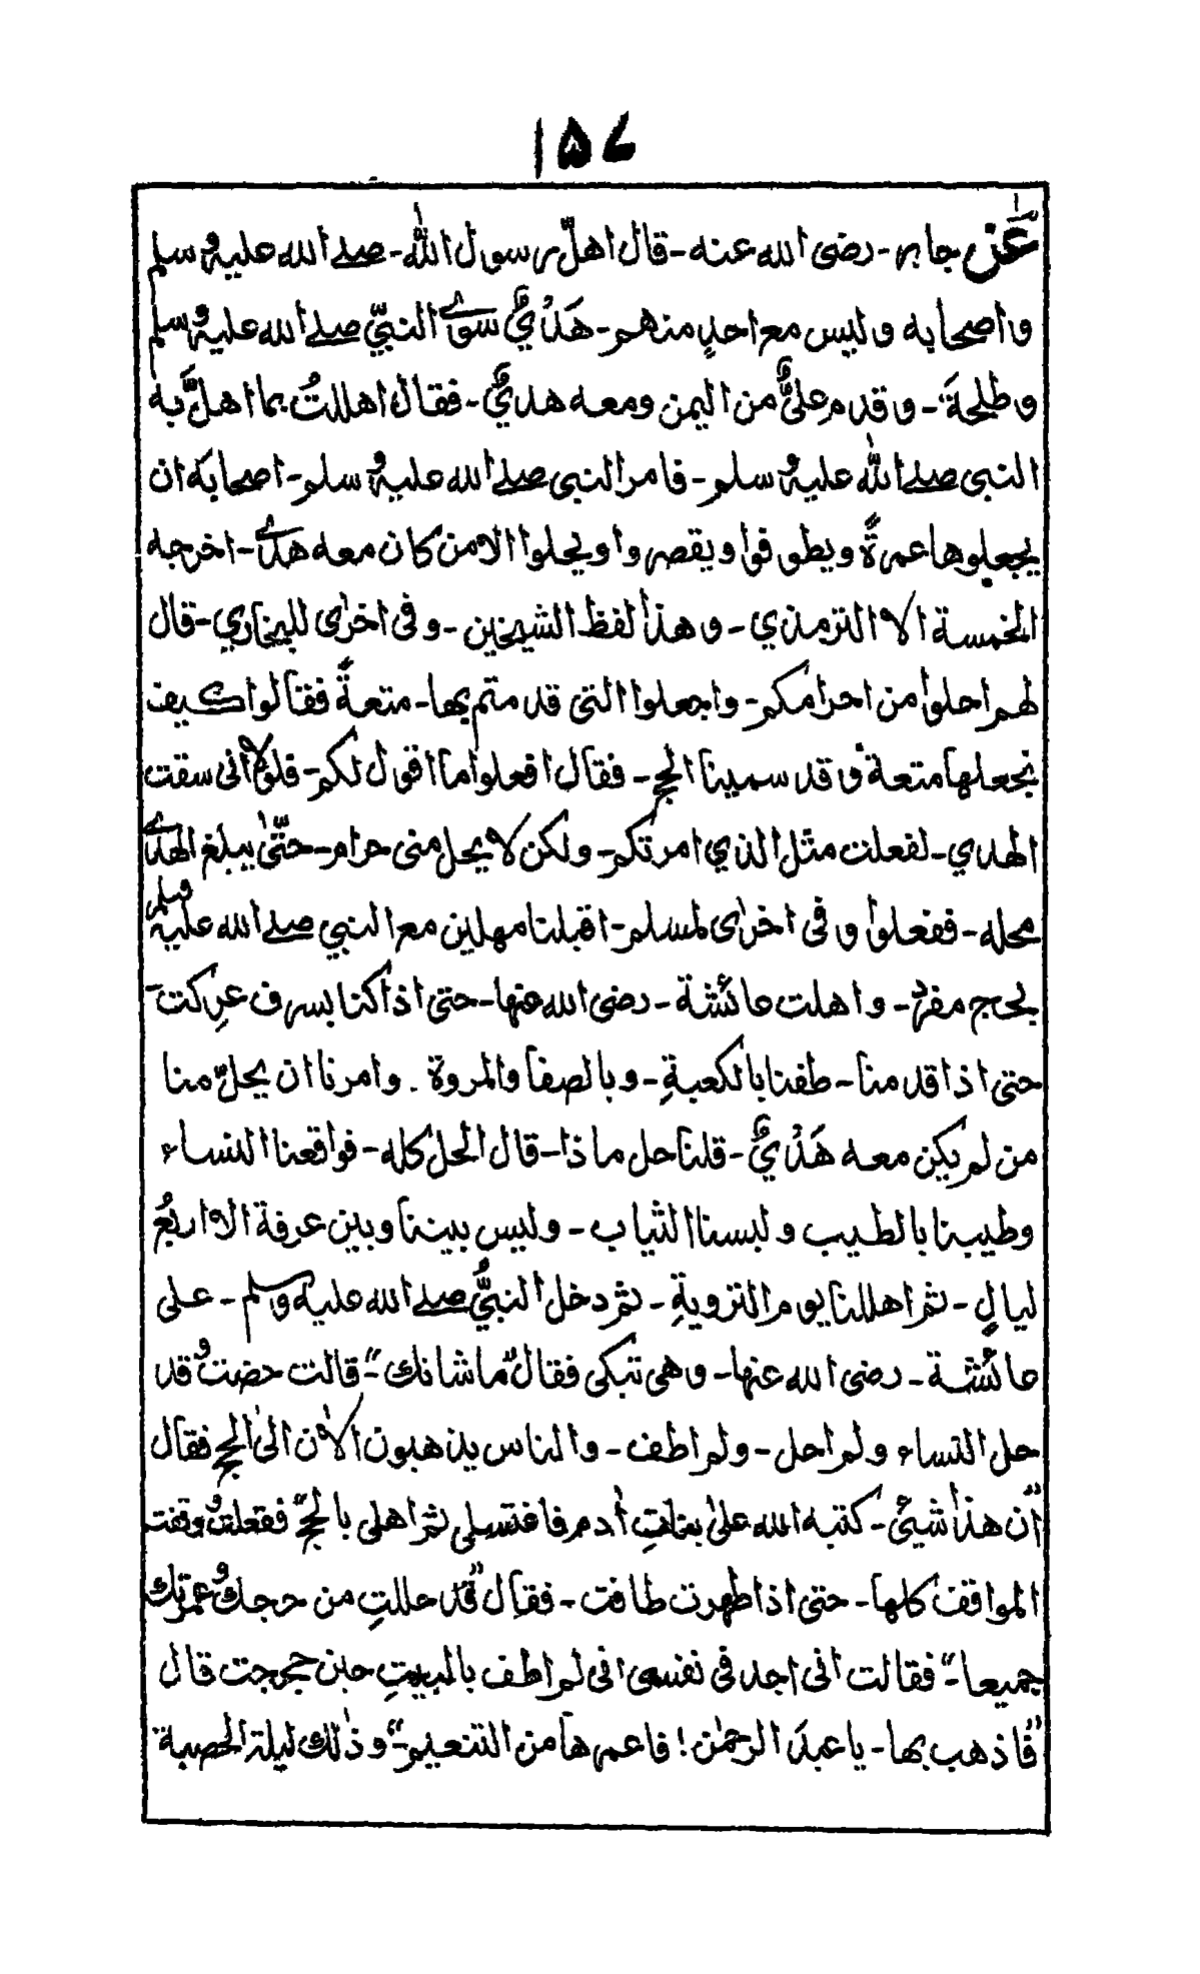 ۱۵۷
عَنْ جابر - رضى الله عنه - قال اهلّ رسول الله - صلے الله عليه وسلم
واصحابه وليس مع احدٍ منهم - هَدْيٌ سوٰے النبيّ صلے الله عليه وسلم
وطلحةَ - وقدم عليٌّ من اليمن ومعه هديٌ - فقال اهللتُ بما اهلَّ به
النبى صلے الله عليه وسلم - فامر النبى صلے الله عليه وسلم - اصحابه ان
يجعلوها عمرةً ويطوفوا ويقصروا ويحلوا الا من كان معه هدے - اخرجه
الخمسة الا الترمذي - وهذا لفظ الشيخين - وفى اخرٰى للبخاري - قال
لهم احلوا من احرامكم - واجعلوا التى قدمتم بها - متعةً فقالوا كيف
نجعلها متعة وقد سمينا الحج - فقال افعلوا ما اقول لكم - فلولا انى سقت
الهدي - لفعلت مثل الذي امرتكم - ولكن لا يحل منى حرام - حتّىٰ يبلغ الهدے
محله - ففعلوا وفى اخرٰى لمسلم - اقبلنا مهلين مع النبي صلے الله عليه وسلم
بحج مفرد - واهلت عائشة - رضى الله عنها - حتى اذا كنا بسرف عرِكت -
حتى اذا قدمنا - طفنا بالكعبةِ - وبالصفا والمروة . وامرنا ان يحلّ منا
من لم يكن معه هَدْيٌ - قلنا حل ماذا - قال الحل كله - فواقعنا النساء
وطيبنا بالطيب ولبسنا الثياب - وليس بيننا وبين عرفة الا اربعُ
ليالٍ - ثم اهللنا يوم الترويةِ - ثم دخل النبيُّ صلے الله عليه وسلم - على
عائشة - رضى الله عنها - وهى تبكى فقال "ما شانك" - قالت حضت وقد
حل النساء ولم احل - ولم اطف - والناس يذهبون الاٰن الى الحج فقال
"ان هذا شيئ - كتبه الله علىٰ بناتِ اٰدم فاغتسلى ثم اهلى بالحج" ففعلت ووقفت
المواقف كلها - حتى اذا طهرت طافت - فقال "قد حللتِ من حجك وعمرتك
جميعا" - فقالت انى اجد فى نفسى انى لم اطف بالبيتِ حين حججت قال
"فاذهب بها - يا عبدَ الرحمٰن ! فاعمرها من التنعيم" - وذٰلك ليلة الحصبة